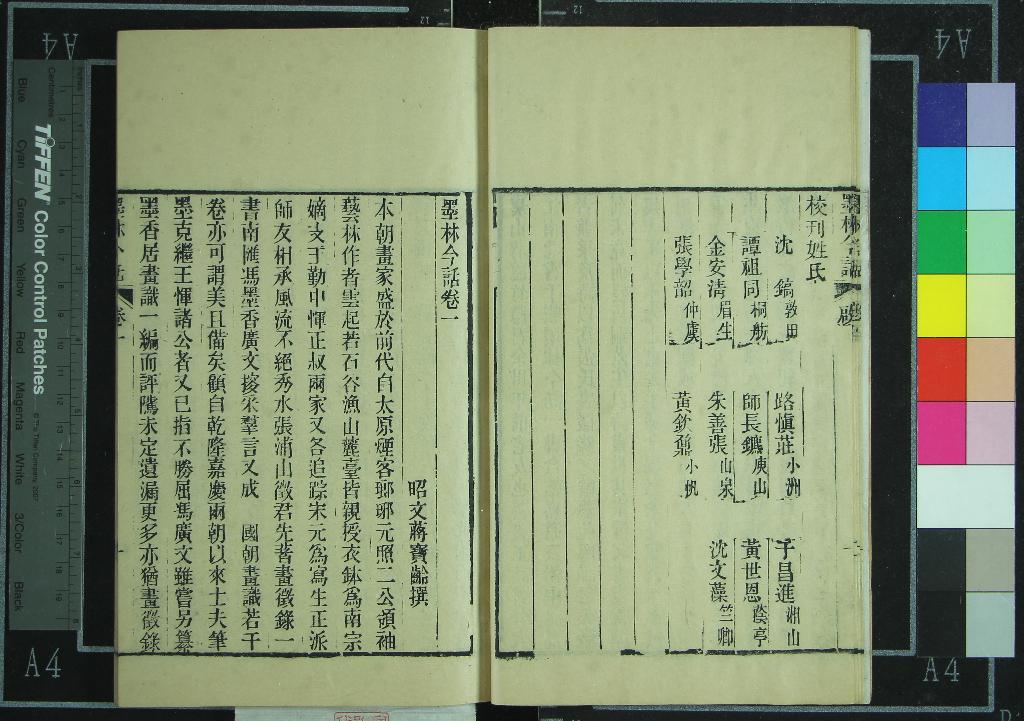 校刊姓氏
沈鎬敦田 路愼莊小洲 于昌進湘山
譚祖同桐舫 師長鑣庾山 黃世恩蔭亭
金安清眉生 朱善張山泉 沈文藻竺卿
張學韶仲虞 黃欽鼐小帆
墨林今話卷一
昭文蔣寶齡撰
本朝畫家盛於前代自太原煙客瑯琊元照二公領袖
藝林作者雲起若石谷漁山麓臺皆親授衣鉢爲南宗
嫡支于勤中惲正叔兩家又各追踪宋元爲寫生正派
師友相承風流不絕秀水張浦山徵君先著畫徵錄一
書南匯馮墨香廣文接采羣言又成 國朝畫識若干
卷亦可謂美且備矣顧自乾隆嘉慶兩朝以來士夫筆
墨克繼王惲諸公者又已指不勝屈馮廣文雖嘗另纂
墨香居畫識一編而評隲未定遺漏更多亦猶畫徵錄
墨林今話 卷一 一
A4
A4
A4
A4
TIFFEN Color Control Patches
© The Tiffen Company, 2007
Centimetres
Inches
Blue Cyan Green Yellow Red Magenta White 3/Color Black